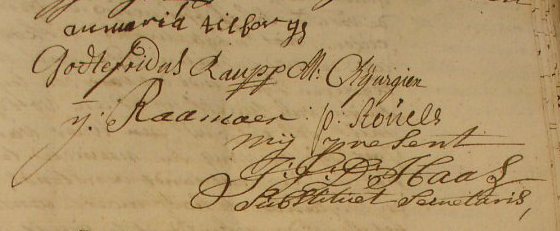 anmaria tilborgs
Godtefridus Raupp M: Chijurgien
y: Raamaer : p: Roúels
mij present
J: J: D: Haas
Substituet Secretaris,